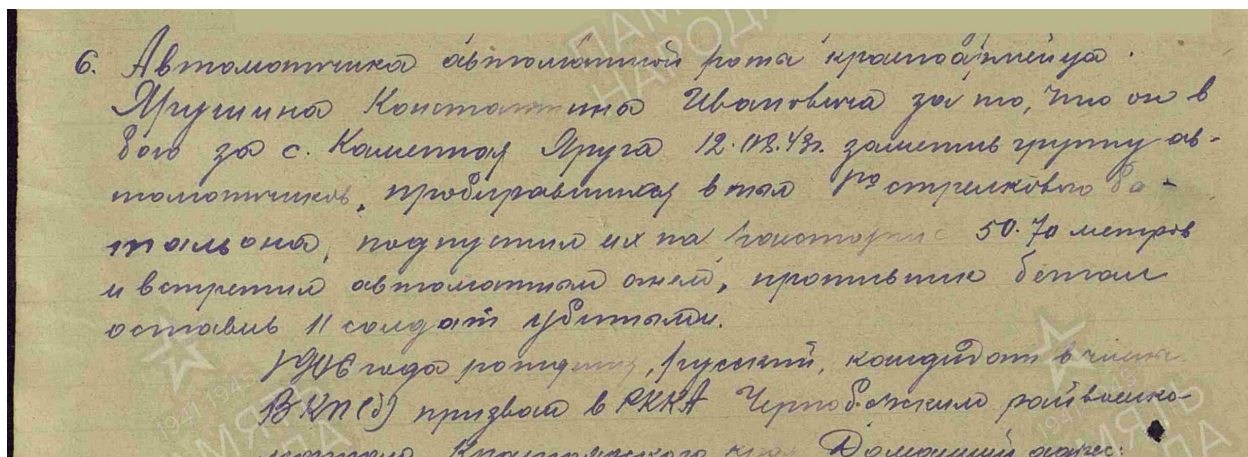 6. Автоматчика автоматной роты красноармейца
Ярушина Константина Ивановича за то, что он в
бою за с. Каменная Яруга 12.08.43г. заметив группу ав-
томатчиков, пробиравшихся в тыл стрелкового ба-
тальона, подпустил их на 50-70 метров
и встретил автоматным огнем, противник бежал
оставив 11 солдат убитыми.
1906 года рождения, русский, кандидат в члены
ВКП(б) призван в РККА райвоенко-
матом Красноярского края Домашний адрес:
ПАМЯТЬ
НАРОДА
1941 1945
ПАМЯТЬ
НАРОДА
1941 1945
ПАМЯТЬ
НАРОДА